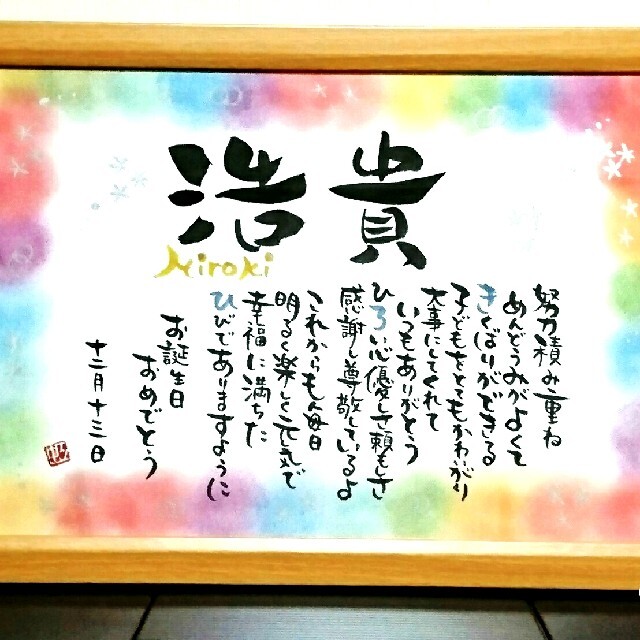 浩貴
Hiroki
努力積み重ね
めんどうみがよくて
きくばりができる
子どもをとてもかわがり
大事にしてくれて
いつもありがとう
ひろい心優しさ頼もしさ
感謝し尊敬しているよ
これからもん毎日
明るく楽しく元気で
幸福に満ちた
ひびでありますように
お誕生日
おめでとう
十二月十三日